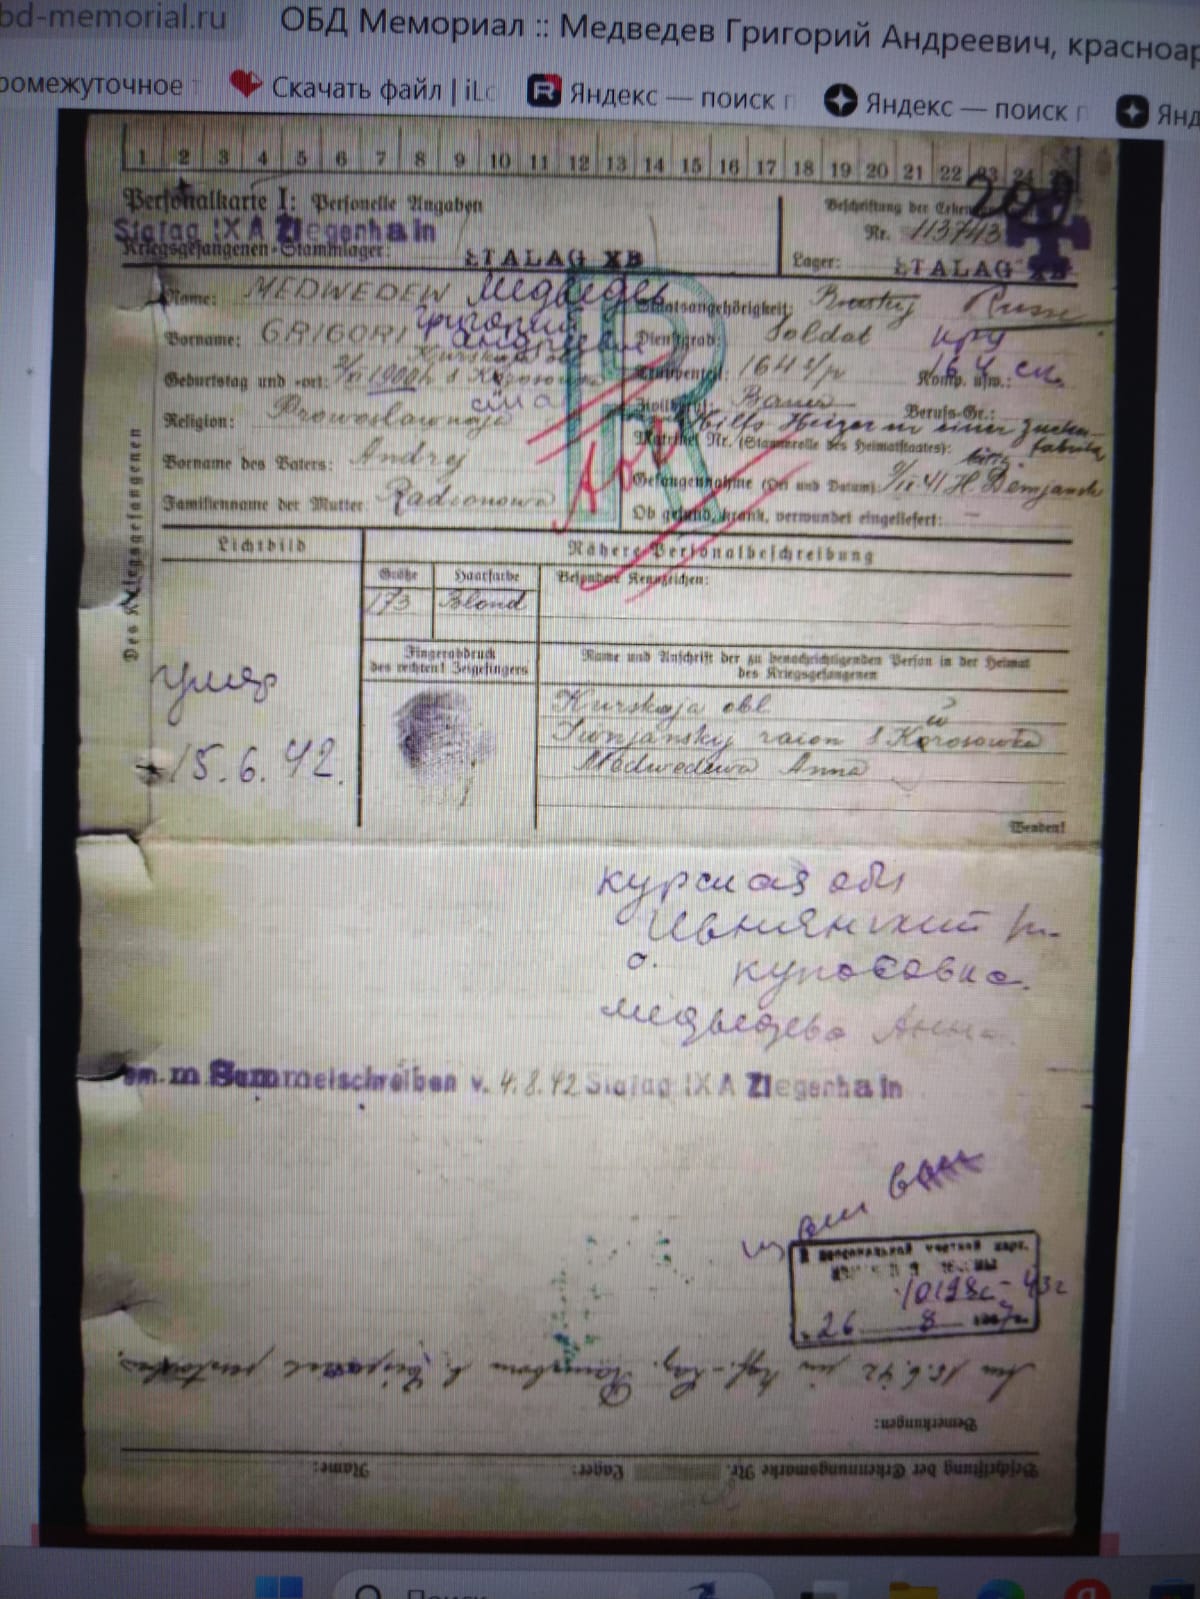 bd-memorial.ru ОБД Мемориал :: Медведев Григорий Андреевич, красноар
ромежуточное Скачать файл | iLo Яндекс — поиск п Яндекс — поиск п Янд
1 2 3 4 5 6 7 8 9 10 11 12 13 14 15 16 17 18 19 20 21 22 23 24 25
209
Personalkarte I: Personelle Angaben
Beschriftung der Erken
Stalag IX A Ziegenhain
Nr. 113743
Kriegsgefangenen-Stammlager: STALAG XB
Lager: STALAG XB
Des Kriegsgefangenen
Name: MEDWEDEW Медведев
Vorname: GRIGORI Григорий
Geburtstag und -ort:
Religion: Prawoslawnaja
Vorname des Vaters: Andrej
Familienname der Mutter: Radionowa
Staatsangehörigkeit: Russe
Dienstgrad: Soldat
Truppenteil: 164 s/p Komp. usw.:
Zivilberuf: Bauer Berufs-Gr.:
Hilfs Heizer in einer Zucker-
fabrik
Matrikel Nr. (Stammrolle des Heimatstaates):
Gefangennahme (Ort und Datum): Demjansk
Ob gesund, krank, verwundet eingeliefert: —
Lichtbild
Nähere Personalbeschreibung
Größe Haarfarbe Besondere Kennzeichen:
173 Blond
Fingerabdruck
des rechten! Zeigefingers
Name und Anschrift der zu benachrichtigenden Person in der Heimat
des Kriegsgefangenen
умер
15.6.42.
Kurskaja obl
Iwnjansky raion s Korosowka
Medwedewa Anna
Wenden!
курская обл
Ивнянский р.
с. куросовка.
медведева Анна
m Sammelschreiben v. 4.8.42 Stalag IX A Ziegenhain
К персональной учетной карт.
10198с-43г
26 8
Bemerkungen:
Beschriftung der Erkennungsmarke Nr. Lager: Name: